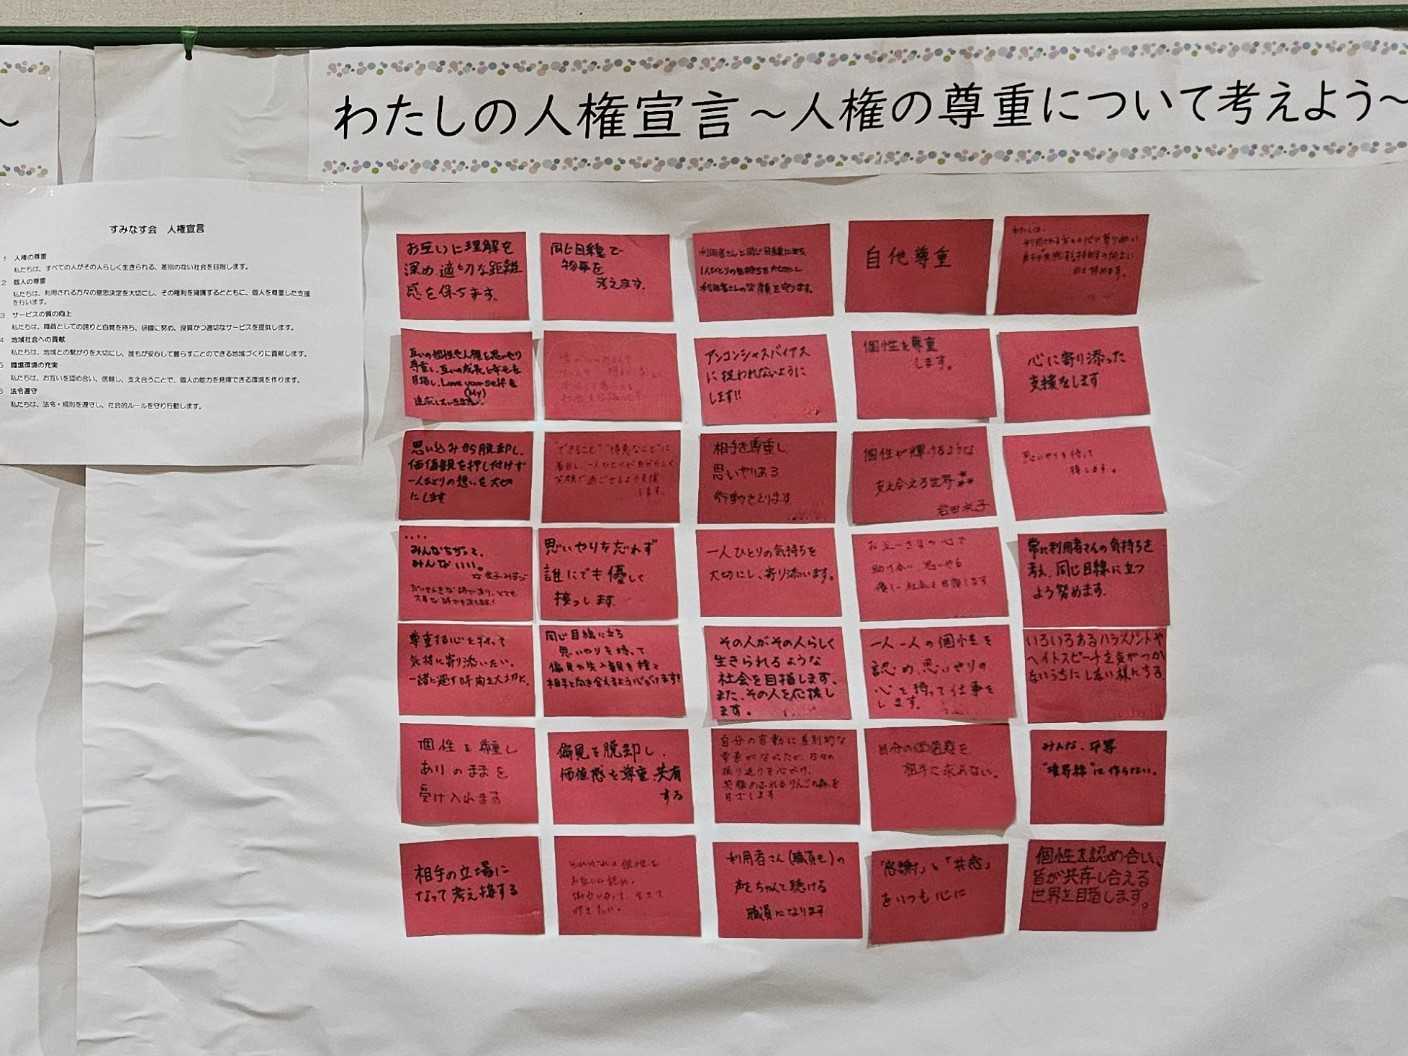 わたしの人権宣言～人権の尊重について考えよう～
すみなす会　人権宣言
1　人権の尊重
私たちは、すべての人がその人らしく生きられる、差別のない社会を目指します。
2　個人の尊重
私たちは、利用される方々の意思決定を大切にし、その権利を擁護するとともに、個人を尊重した支援
を行います。
3　サービスの質の向上
私たちは、職員としての誇りと自覚を持ち、研鑽に努め、良質かつ適切なサービスを提供します。
4　地域社会への貢献
私たちは、地域との繋がりを大切にし、誰もが安心して暮らすことのできる地域づくりに貢献します。
5　職場環境の充実
私たちは、お互いを認め合い、信頼し、支え合うことで、個人の能力を発揮できる環境を作ります。
6　法令遵守
私たちは、法令・規則を遵守し、社会的ルールを守り行動します。
お互いに理解を
深め適切な距離
感を保ちます。
同じ目線で
物事を
考えます。
利用者さんと同じ目線に立ち
1人ひとりの気持ちを大切にし
利用者さんの笑顔を守ります。
自他尊重
わたしは、
互いの個性や人権を思いやり
尊重し、互いの成長
目指し、Love yourself &
(My)
アンコンシャスバイアス
に捉われないように
します!!
個性を尊重
します。
心に寄り添った
支援をします
思い込みから脱却し、
価値観を押し付けず
一人ひとりの想いを大切
にします
"できること""得意なこと"に
着目し、一人ひとりが自分らしく
笑顔で過ごせるよう支援
します。
相手を尊重し
思いやりある
行動をとります
個性が輝けるような
支え合える世界
思いやりを持って
接します。
みんなちがって、
みんないい。
思いやりを忘れず
誰にでも優しく
接っします。
一人ひとりの気持ちを
大切にし、寄り添います。
お互いさまの心で
助け合い 思いやる
優しい社会を目指します
常に利用者さんの気持ちを
考え、同じ目線に立つ
よう努めます。
尊重する心を持って
気持に寄り添いたい。
一緒に過す時間を大切に。
同じ目線に立ち
思いやりを持って
偏見や先入観を捨て
相手と向き合えるよう心がけます!
その人がその人らしく
生きられるような
社会を目指します、
また、その人を応援し
ます。
一人一人の個性を
認め、思いやりの
心を持って仕事を
します。
いろいろあるハラスメントや
ヘイトスピーチを気がつか
ないうちに しない様にする
個性を尊重し
ありのままを
受け入れます
偏見を脱却し、
価値感を尊重 共有
する
自分の言動に差別的な
自分の価値感を
相手に求めない。
みんな、平等
"境界線"は作らない。
相手の立場に
なって考え接する
それぞれの個性を
お互いに認め、
利用者さん（職員も）の
声をちゃんと聴ける
職員になります
「感謝」と「共感」
をいつも心に
個性を認め合い、
皆が共存し合える
世界を目指します。